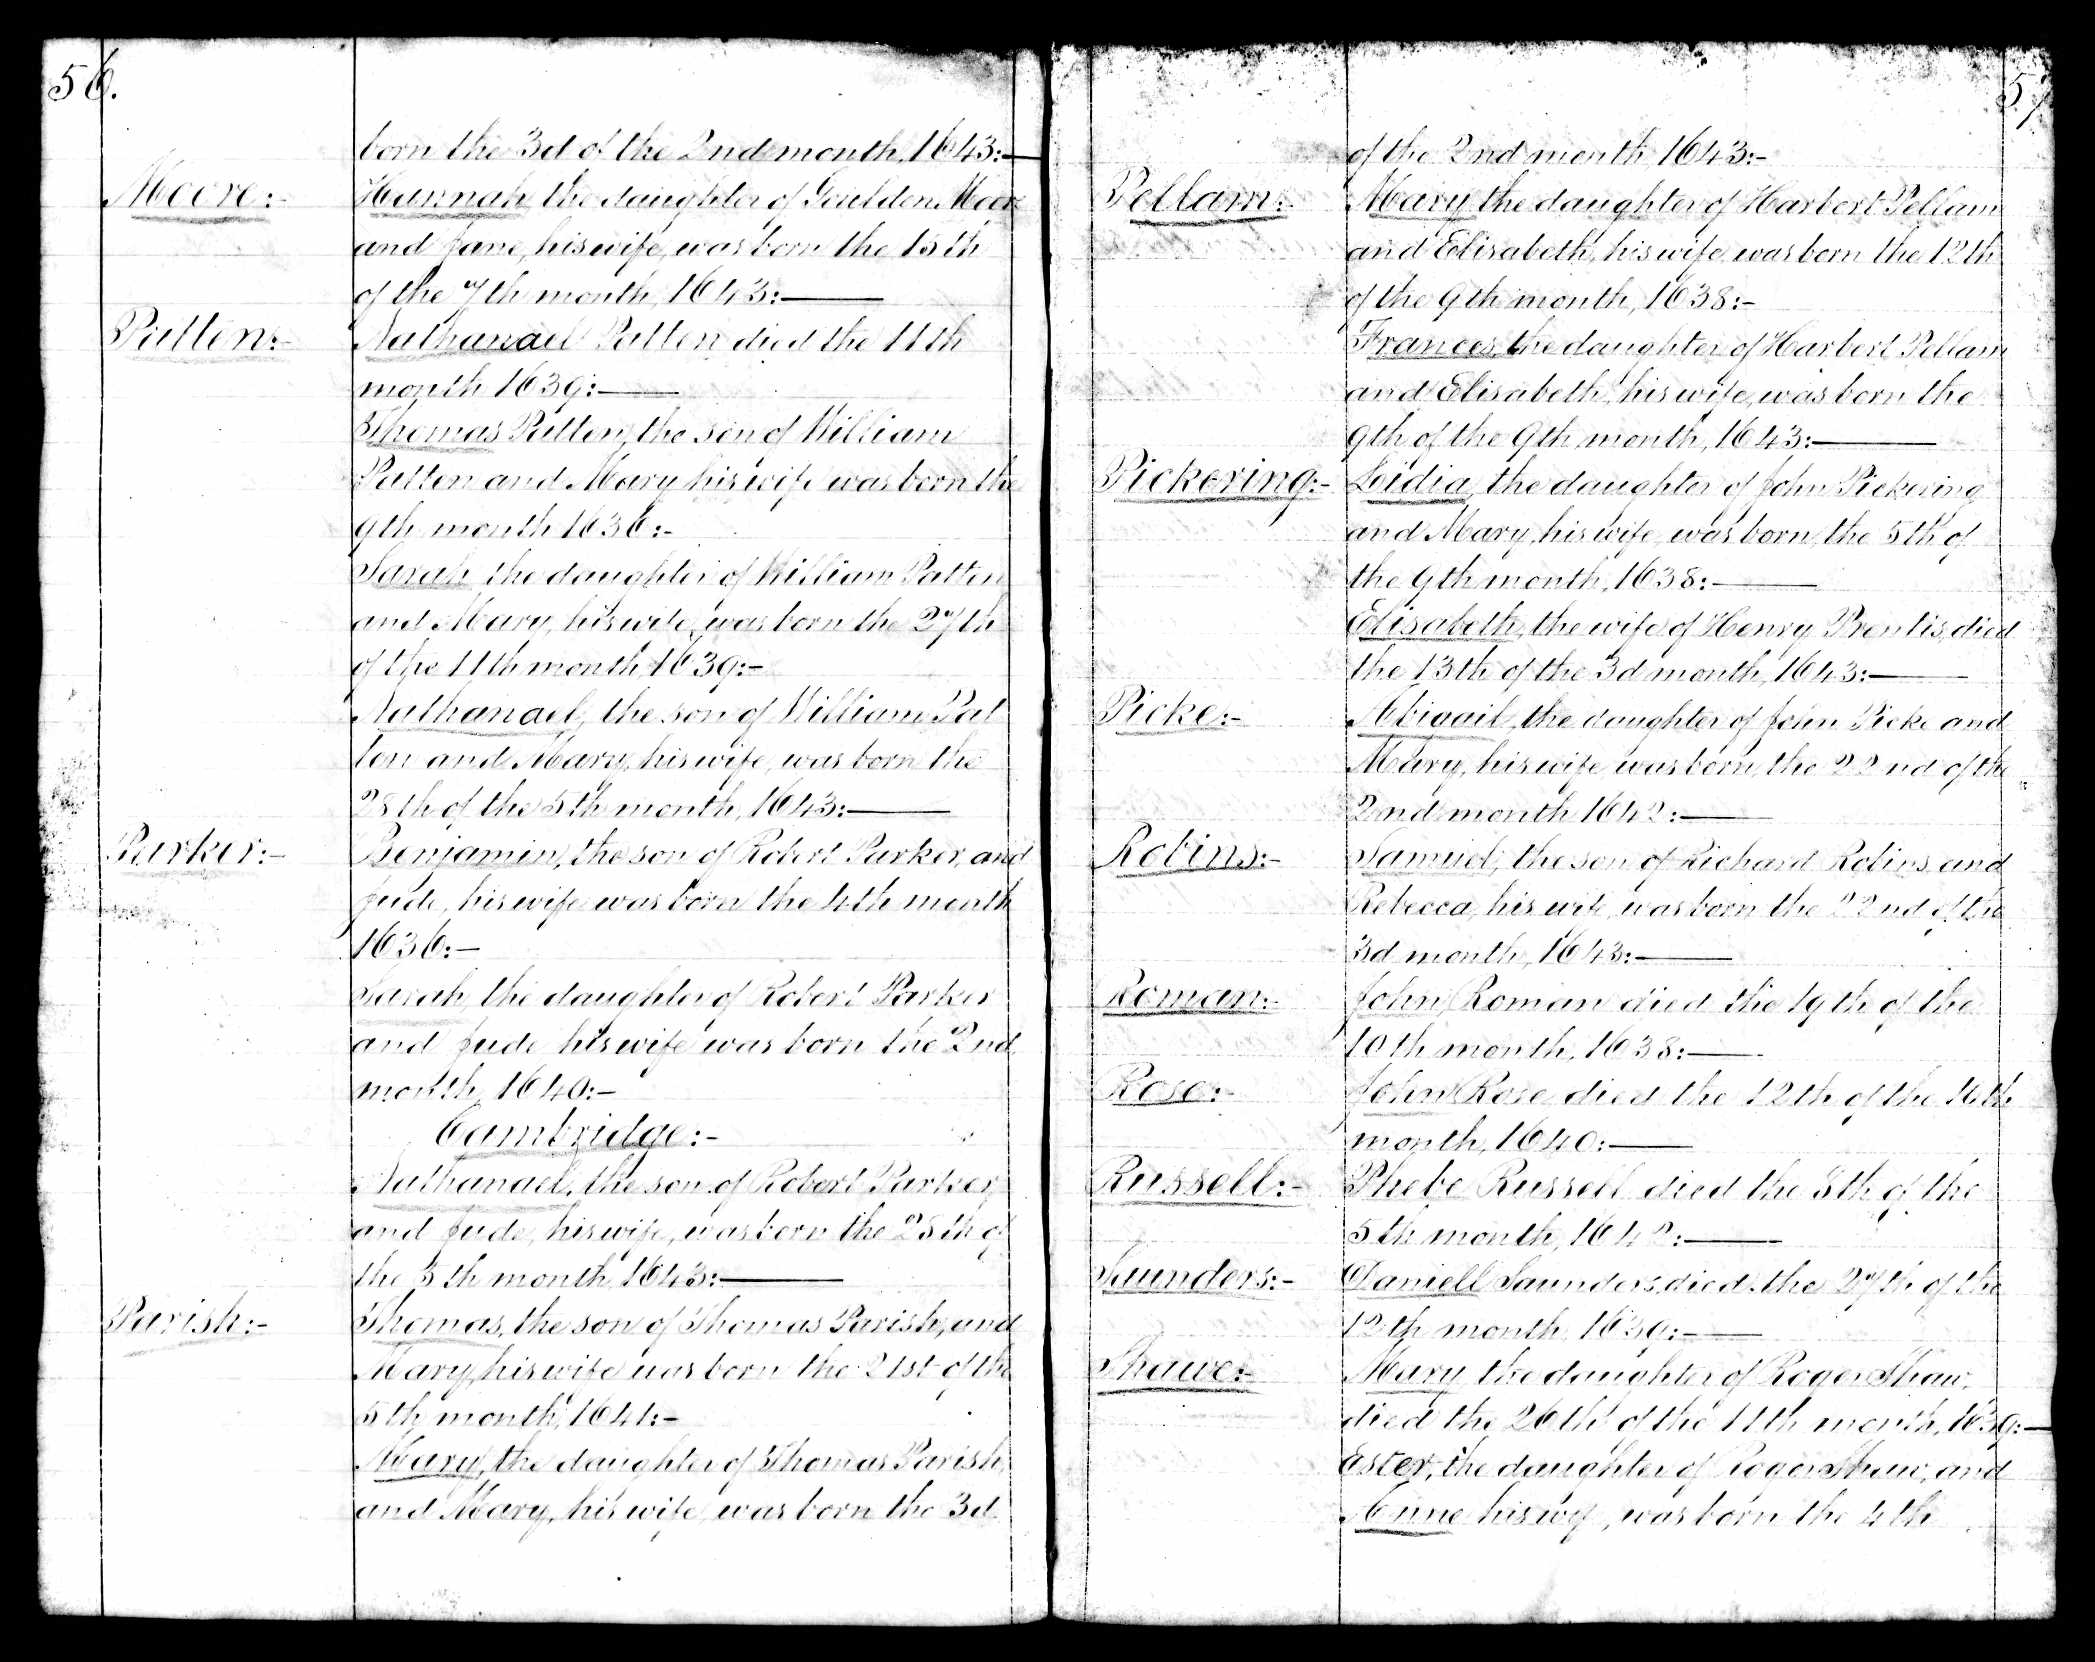 56.
born the 3d of the 2nd month, 1643:—
Moore:- Hannah the daughter of Goulden Moore
and Jane, his wife, was born the 15th
of the 7th month, 1643:—
Patten:- Nathanael Patten died the 11th
month 1639:—
Thomas Patten, the son of William
Patten and Mary his wife was born the
9th month 1636:-
Sarah, the daughter of William Patten
and Mary, his wife, was born the 27th
of the 11th month, 1639:-
Nathanael, the son of William Pat
ten and Mary, his wife, was born the
28th of the 5th month, 1643:—
Parker:- Benjamin, the son of Robert Parker, and
Jude, his wife was born the 4th month
1636:-
Sarah, the daughter of Robert Parker
and Jude his wife was born the 2nd
month, 1640:-
Cambridge:-
Nathanael, the son of Robert Parker,
and Jude, his wife, was born the 28th of
the 5th month, 1643:—
Parish:- Thomas, the son of Thomas Parish, and
Mary, his wife was born the 21st of the
5th month, 1641:-
Mary, the daughter of Thomas Parish,
and Mary, his wife, was born the 3d
57
of the 2nd month, 1643:-
Pellam:- Mary the daughter of Harbert Pellam
and Elisabeth, his wife, was born the 12th
of the 9th month, 1638:-
Frances, the daughter of Harbert Pellam
and Elisabeth, his wife, was born the
9th of the 9th month, 1643:—
Pickering:- Lidia, the daughter of John Pickering
and Mary, his wife, was born, the 5th of
the 9th month, 1638:—
Elisabeth, the wife of Henry Prentis, died
the 13th of the 3d month, 1643:—
Picke:- Abigail, the daughter of John Picke and
Mary, his wife, was born, the 22nd of the
2nd month 1642:—
Robins:- Samuel, the son of Richard Robins, and
Rebecca, his wife, was born the 22nd of the
3d month, 1643:—
Roman:- John Roman died the 19th of the
10th month, 1638:—
Rose:- John Rose died the 12th of the
month, 1640:—
Russell:- Phebe Russell died the 8th of the
5th month, 1642:—
Saunders:- Daniell Saunders, died the 27th of the
12th month, 1639:—
Shawe:- Mary the daughter of Roger Shaw,
died the 26th of the 11th month, 1639:—
Ester, the daughter of Roger Shaw, and
Anne his wif, was born the 4th